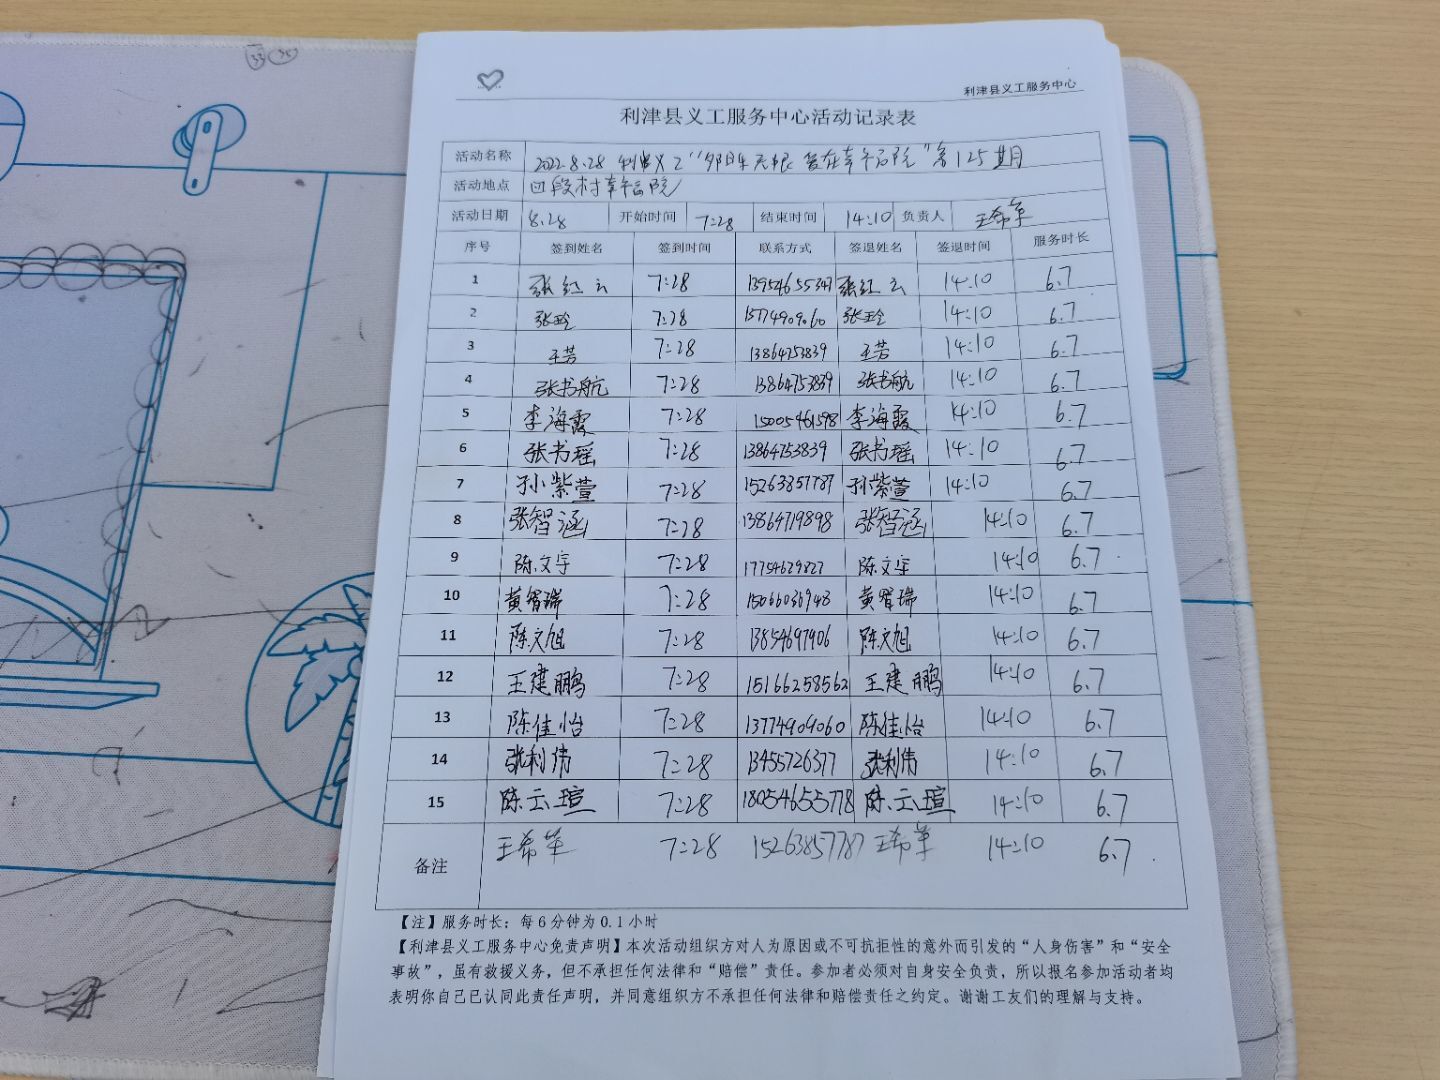 利津县义工服务中心
利津县义工服务中心活动记录表
活动名称 2022.8.28 利津义工“夕阳无限 爱在幸福院”第125期
活动地点 四段村幸福院
活动日期 8.28 开始时间 7:28 结束时间 14:10 负责人 王希军
序号 签到姓名 签到时间 联系方式 签退姓名 签退时间 服务时长
1 张红云 7:28 13954655347 张红云 14:10 6.7
2 张玲 7:28 15774909060 张玲 14:10 6.7
3 王芳 7:28 13864753839 王芳 14:10 6.7
4 张书航 7:28 13864753839 张书航 14:10 6.7
5 李海霞 7:28 15005461598 李海霞 14:10 6.7
6 张书瑶 7:28 13864753839 张书瑶 14:10 6.7
7 孙紫萱 7:28 15263857787 孙紫萱 14:10 6.7
8 张智涵 7:28 13864719898 张智涵 14:10 6.7
9 陈文宇 7:28 17754629827 陈文宇 14:10 6.7
10 黄智瑞 7:28 15066036948 黄智瑞 14:10 6.7
11 陈文旭 7:28 13854697906 陈文旭 14:10 6.7
12 王建鹏 7:28 15166258562 王建鹏 14:10 6.7
13 陈佳怡 7:28 13774909060 陈佳怡 14:10 6.7
14 张利伟 7:28 13455726377 张利伟 14:10 6.7
15 陈云瑄 7:28 18054655778 陈云瑄 14:10 6.7
备注 王希军 7:28 15263857787 王希军 14:10 6.7
【注】服务时长：每6分钟为0.1小时
【利津县义工服务中心免责声明】本次活动组织方对人为原因或不可抗拒性的意外而引发的“人身伤害”和“安全
事故”，虽有救援义务，但不承担任何法律和“赔偿”责任。参加者必须对自身安全负责，所以报名参加活动者均
表明你自己已认同此责任声明，并同意组织方不承担任何法律和赔偿责任之约定。谢谢工友们的理解与支持。